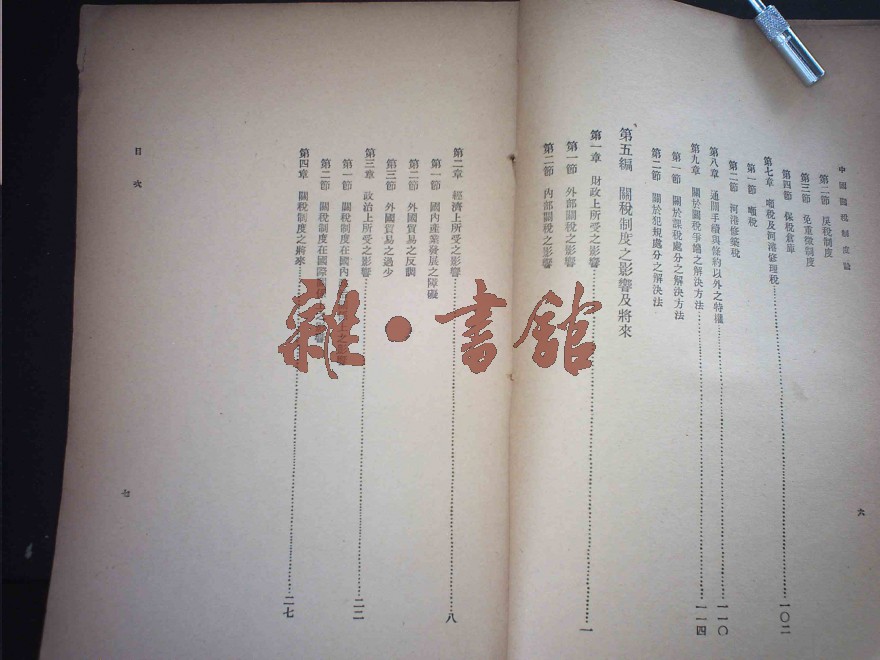 中國關稅制度論
第二節 戾稅制度
第三節 免重徵制度
第四節 保稅倉庫
第七章 噸稅及河港修理稅 一〇二
第一節 噸稅
第二節 河港修築稅
第八章 通關手續與條約以外之特權 一一〇
第九章 關於關稅爭端之解決方法 一一四
第一節 關於課稅處分之解決方法
第二節 關於犯規處分之解決法
第五編 關稅制度之影響及將來
第一章 財政上所受之影響 一
第一節 外部關稅之影響
第二節 內部關稅之影響
六
第二章 經濟上所受之影響 八
第一節 國內產業發展之障礙
第二節 外國貿易之反調
第三節 外國貿易之過少
第三章 政治上所受之影響 二二
第一節 關稅制度在國內
第二節 關稅制度在國際
第四章 關稅制度之將來 二七
目次
七
雜·書館